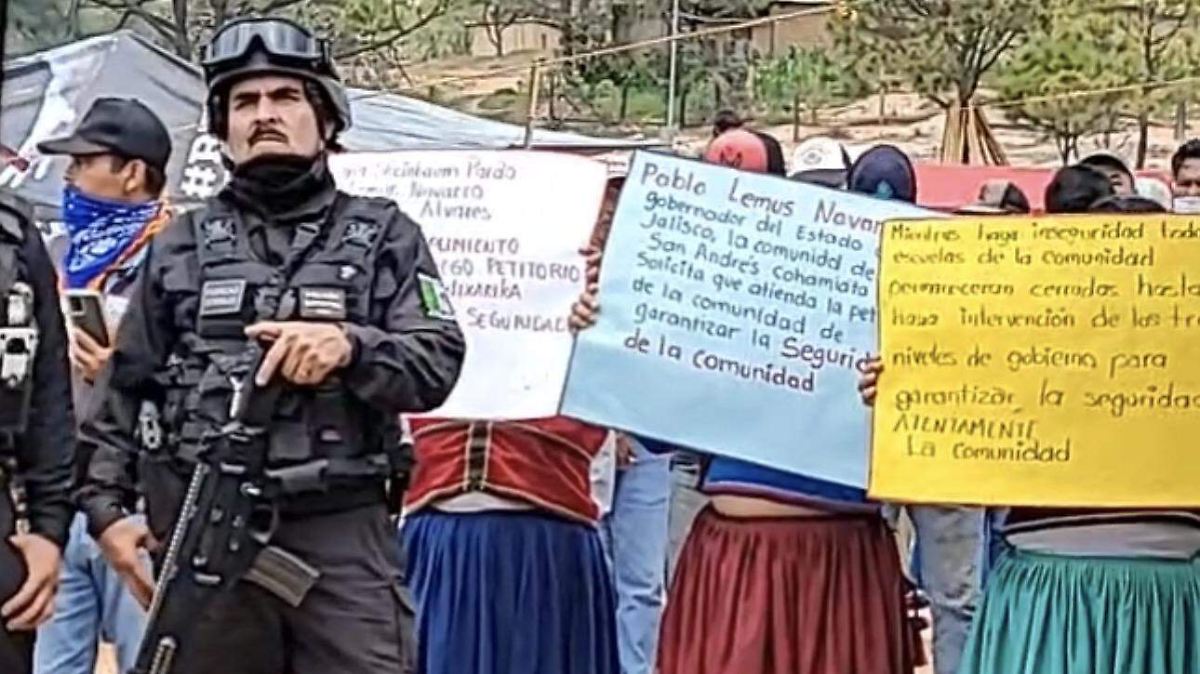 Pardo
Navarro
Alvares
PETITORIO
SEGURIDAD
Pablo Lemus Navar
gobernador del Estado
Jalisco, la comunidd de
San Andrés cohamiata
Solicita que atienda la pet
de la comunidad de
garantizar la Segurid
de la comunidad
Mientras haya inseguridad toda
escuelas de la comunidad
permaneceran cerradas hasta
haya intervención de los tr
niveles de gobierno para
garantizar la seguridad
ATENTAMENTE
La comunidad